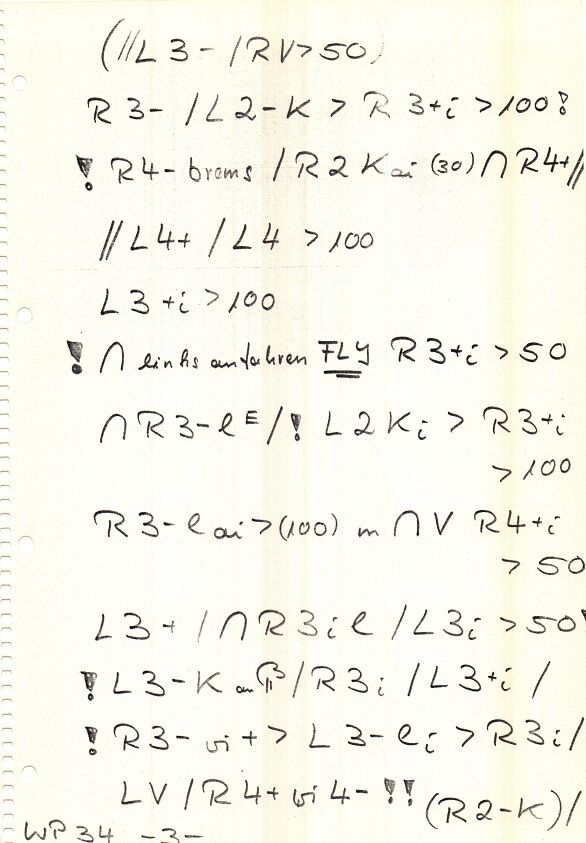 (//L3- /RV>50)
R3- /L2-K > R3+i >100!
! R4- brems /R2Kai (30) ∩ R4+//
//L4+ /L4 >100
L3+i >100
! ∩ links anfahren FLY R3+i >50
∩R3-lE/! L2Ki > R3+i
>100
R3-lai>(100) in ∩V R4+i
>50
L3+ /∩R3il /L3i >50!
! L3-K an /R3i /L3+i /
! R3- wi+> L3-li > R3i/
LV/R4+ wi 4- !! (R2-K)/
WP34 -3-